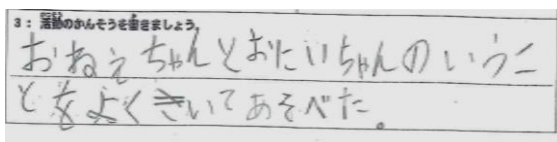 3：活動のかんそうを書きましょう。
おねえちゃんとおにいちゃんのいうこ
とをよくきいてあそべた。